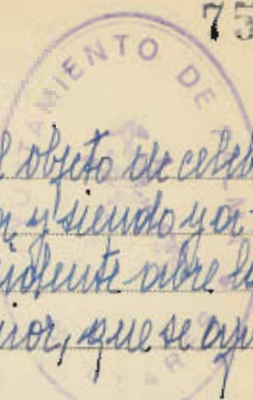 75
AYUNTAMIENTO DE
el objeto de celeb
or y siendo ya
sidente abre la
rior, que se ap